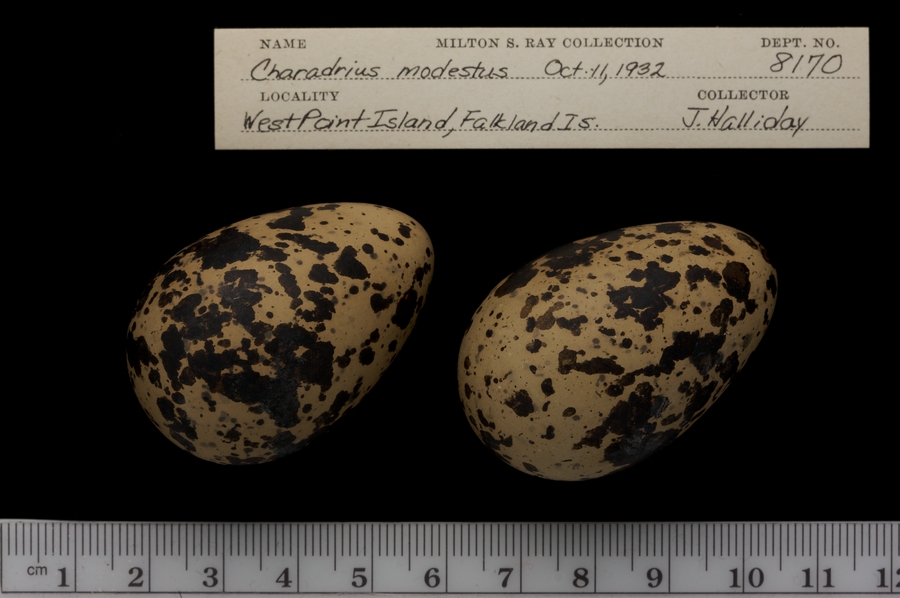 NAME MILTON S. RAY COLLECTION DEPT. NO.
Charadrius modestus Oct. 11, 1932 8170
LOCALITY COLLECTOR
West Point Island, Falkland Is. J. Halliday
cm 1 2 3 4 5 6 7 8 9 10 11 12